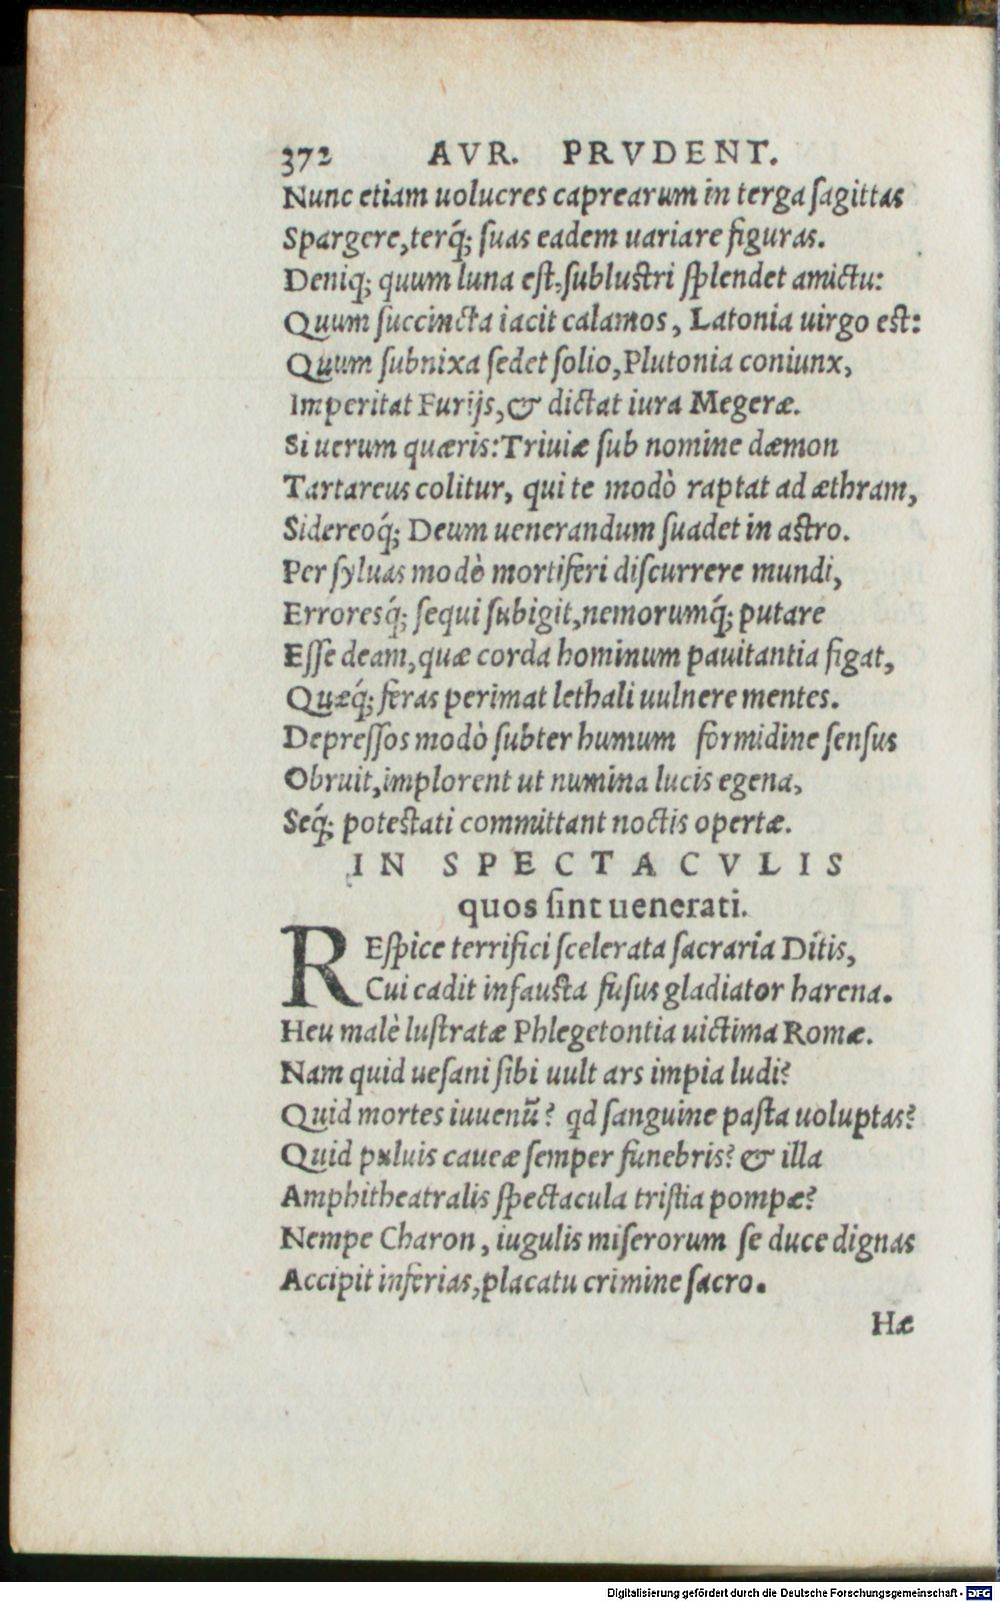 372 AVR. PRVDENT.
Nunc etiam uolucres caprearum in terga ſagittas
Spargere,terq́; ſuas eadem uariare figuras.
Deniq; quum luna eſt,ſubluſtri ſplendet amictu:
Quum ſuccincta iacit calamos, Latonia uirgo eſt:
Quum ſubnixa ſedet ſolio,Plutonia coniunx,
Imperitat Furijs,& dictat iura Megeræ.
Si uerum quæris:Triuiæ ſub nomine dæmon
Tartareus colitur, qui te modò raptat ad æthram,
Sidereoq́; Deum uenerandum ſuadet in aſtro.
Per ſyluas modò mortiferi diſcurrere mundi,
Erroresq́; ſequi ſubigit,nemorumq́; putare
Eſſe deam,quæ corda hominum pauitantia figat,
Quæq́; feras perimat lethali uulnere mentes.
Depreſſos modò ſubter humum formidine ſenſus
Obruit,implorent ut numina lucis egena,
Seq́; poteſtati committant noctis opertæ.
IN SPECTACVLIS
quos ſint uenerati.
REſpice terrifici ſcelerata ſacraria Ditis,
Cui cadit infauſta fuſus gladiator harena.
Heu malè luſtratæ Phlegetontia uictima Romæ.
Nam quid ueſani ſibi uult ars impia ludi?
Quid mortes iuuenū? qd ſanguine paſta uoluptas?
Quid puluis caueæ ſemper funebris? & illa
Amphitheatralis ſpectacula triſtia pompæ?
Nempe Charon, iugulis miſerorum ſe duce dignas
Accipit inferias,placatu crimine ſacro.
Hæ
Digitalisierung gefördert durch die Deutsche Forschungsgemeinschaft - DFG